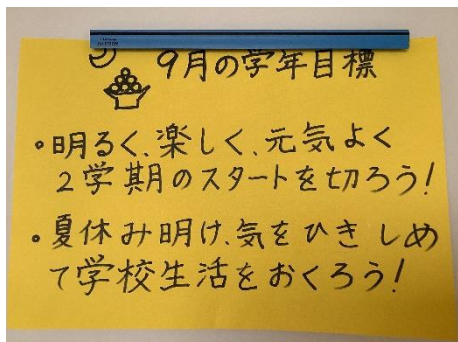 9月の学年目標
•明るく、楽しく、元気よく
2学期のスタートを切ろう!
•夏休み明け、気をひきしめ
て学校生活をおくろう!